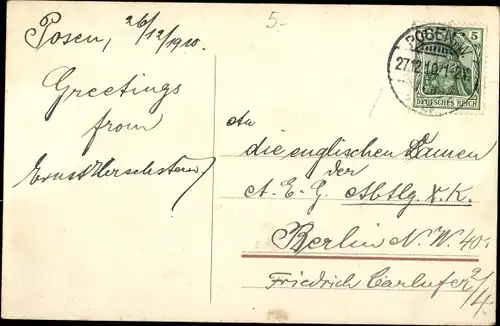 Posen, 26/12/1910.
5.-
Greetings
from
Ernst
POSEN
27.12.10.1-2
5
DEUTSCHES REICH
An
die englischen Damen
der
A. E. G. Abtlg. X. K.
Berlin N. W. 40.
Friedrich Carlufer 2/4.